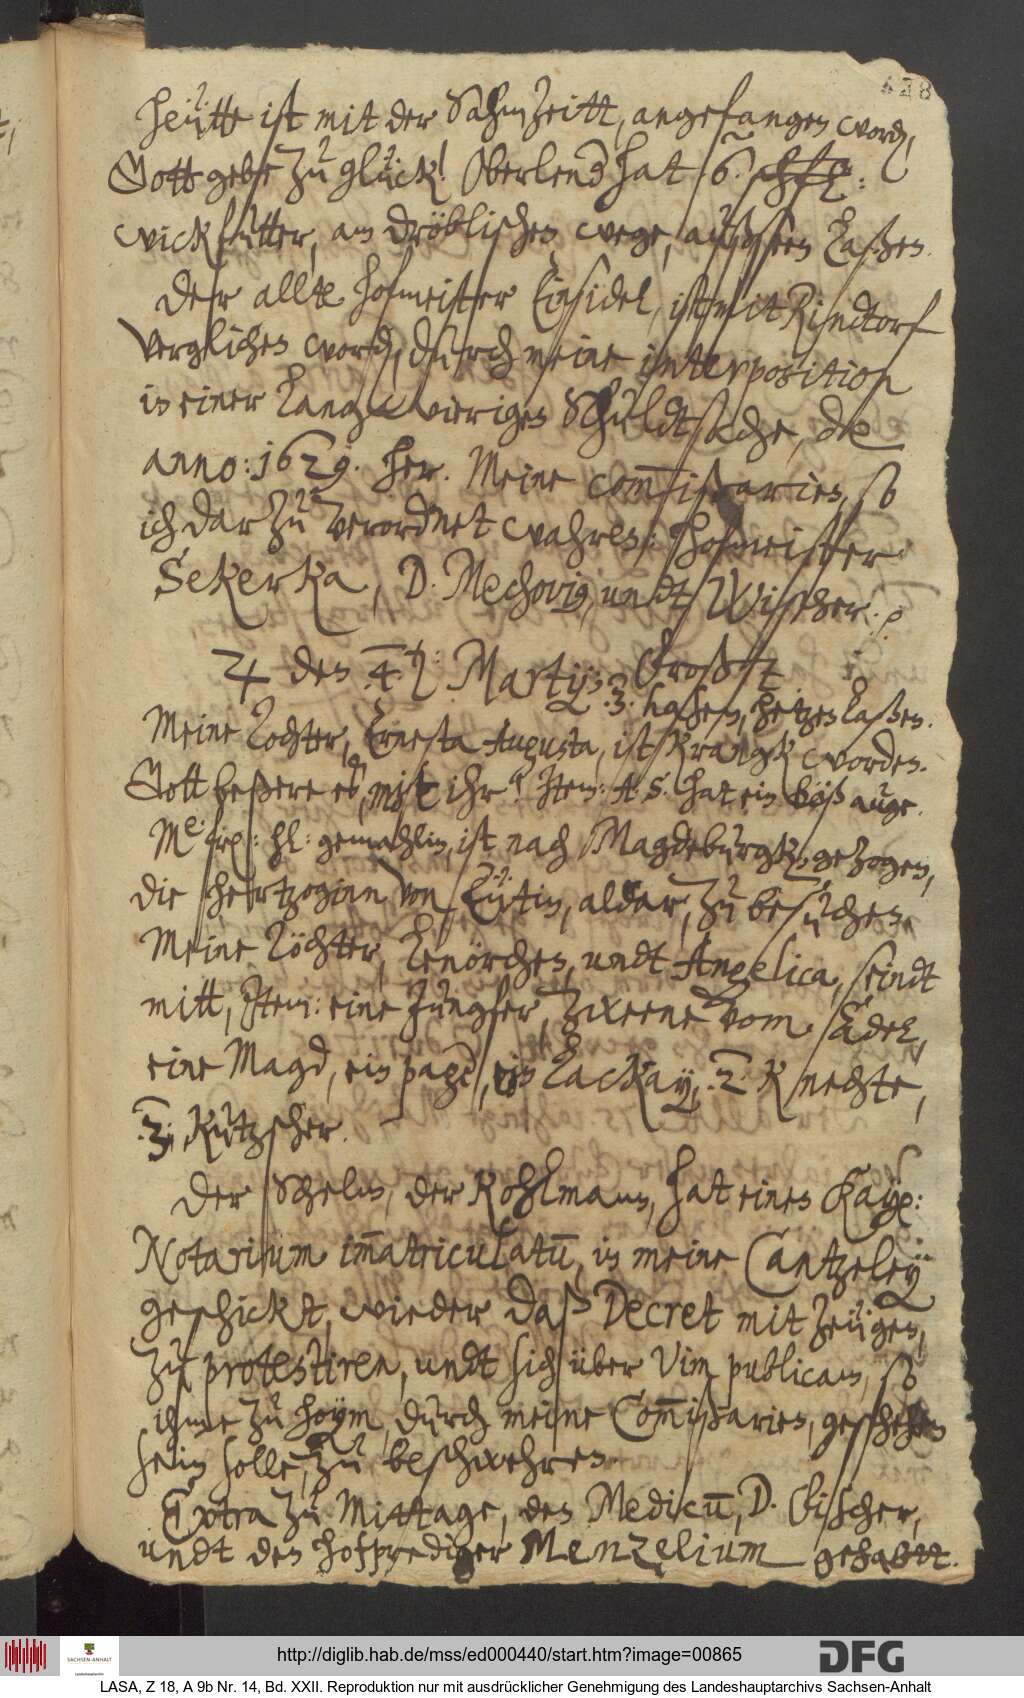 628
Heütte ist mit der Sahmzeitt, angefangen word(en),
Gott gebe zu glück! Oberlend(er) hat 6. schfl:
wickfutter, am Dröblischen wege, außseen laßen.
Der allte Hofmeister Einsidel, ist mit Rindtorf
verglichen word(en), durch meine interposition
in einer langwierigen Schuldtsache, de
anno: 1629. her. Meine com̅ißarien, so
ich darzu verordnet wahren: Hofmeister
Sekerka, D. Mechovig, undt Wischer. p
♃ den 4. Martij:
3. hasen, hetzen laßen.
Meine Tochter, Ernesta Augusta, ist krangk worden.
Gott beßere es, mit ihr! Item: A. S. hat ein böß auge.
Me: frp: hl: gemahlin, ist nach Magdeburgk, gezogen,
die Hertzoginn von Eütin, aldar, zu besuchen.
Meine Töchter, Lenörchen, undt Angelica, seindt
mitt, Item: eine Jungfer, zweene vom Adel,
eine Magd, ein page, ein Lackay, 2. Knechte,
3. Kutzscher.
Der Schelm, der Kohlman, hat einen Kay:
Notarium im̅atriculatu̅, in meine Cantzeley
geschickt, wieder daß Decret mit zeügen,
zu protestiren, undt sich über vim publicam, so
ihme zu Hoym, durch meine Com̅ißarien, geschehen
sein solle, zu beschwehren.
Extra zu Mittage, den Medicu̅, D. Fischer,
undt den Hofprediger Menzelium gehabtt.
http://diglib.hab.de/mss/ed000440/start.htm?image=00865
DFG
SACHSEN-ANHALT
LASA, Z 18, A 9b Nr. 14, Bd. XXII. Reproduktion nur mit ausdrücklicher Genehmigung des Landeshauptarchivs Sachsen-Anhalt